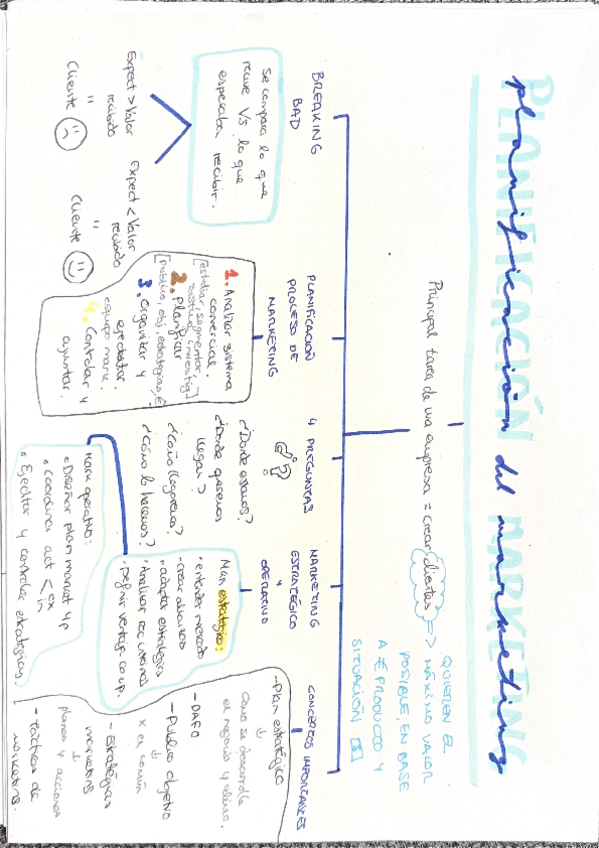 PLANIFICACIÓN MARKETING
planificación del marketing
Principal tarea de una empresa = crear clientes =>
QUIEREN EL
MÁXIMO VALOR
POSIBLE, EN BASE
A € PRODUCTO Y
SITUACIÓN
BREAKING
BAD
Se compara lo que
recive VS lo que
esperaba recibir.
Expect > Valor
recibido
"
Cliente
Expect < Valor
recibido
"
Cliente
PLANIFICACIÓN
PROCESO DE
MARKETING
1. Analizar sistema
comercial
[estudiar, segmentar,
investig]
2. Planificar
[publico, obj, estrategias, €
3. Organizar y
ejecutar
equipo mark.
4. Controlar y
ajustar.
4 PREGUNTAS
¿?
¿Donde estamos?
¿Donde queremos
llegar?
¿Cómo llegaremos?
¿Cómo lo haremos?
MARKETING
ESTRATÉGICO
Y
OPERATIVO
Man estratégico:
• entender mercado
• crear alianzas
• adaptar estrategias
• Analizar rec internos
• Definir ventaja comp.
Mark operativo:
• Diseñar plan market 4p
• Coordinar act < ex
in
• Ejecutar y controlar estrategias.
CONCEPTOS IMPORTANTES
- Plan estratégico
↓
Como se desarrolla
el negocio y
- DAFO
- Publico objetivo
↓
x el
- Estratégias
marketing
↓
planes y acciones
- tácticas de
marketing.